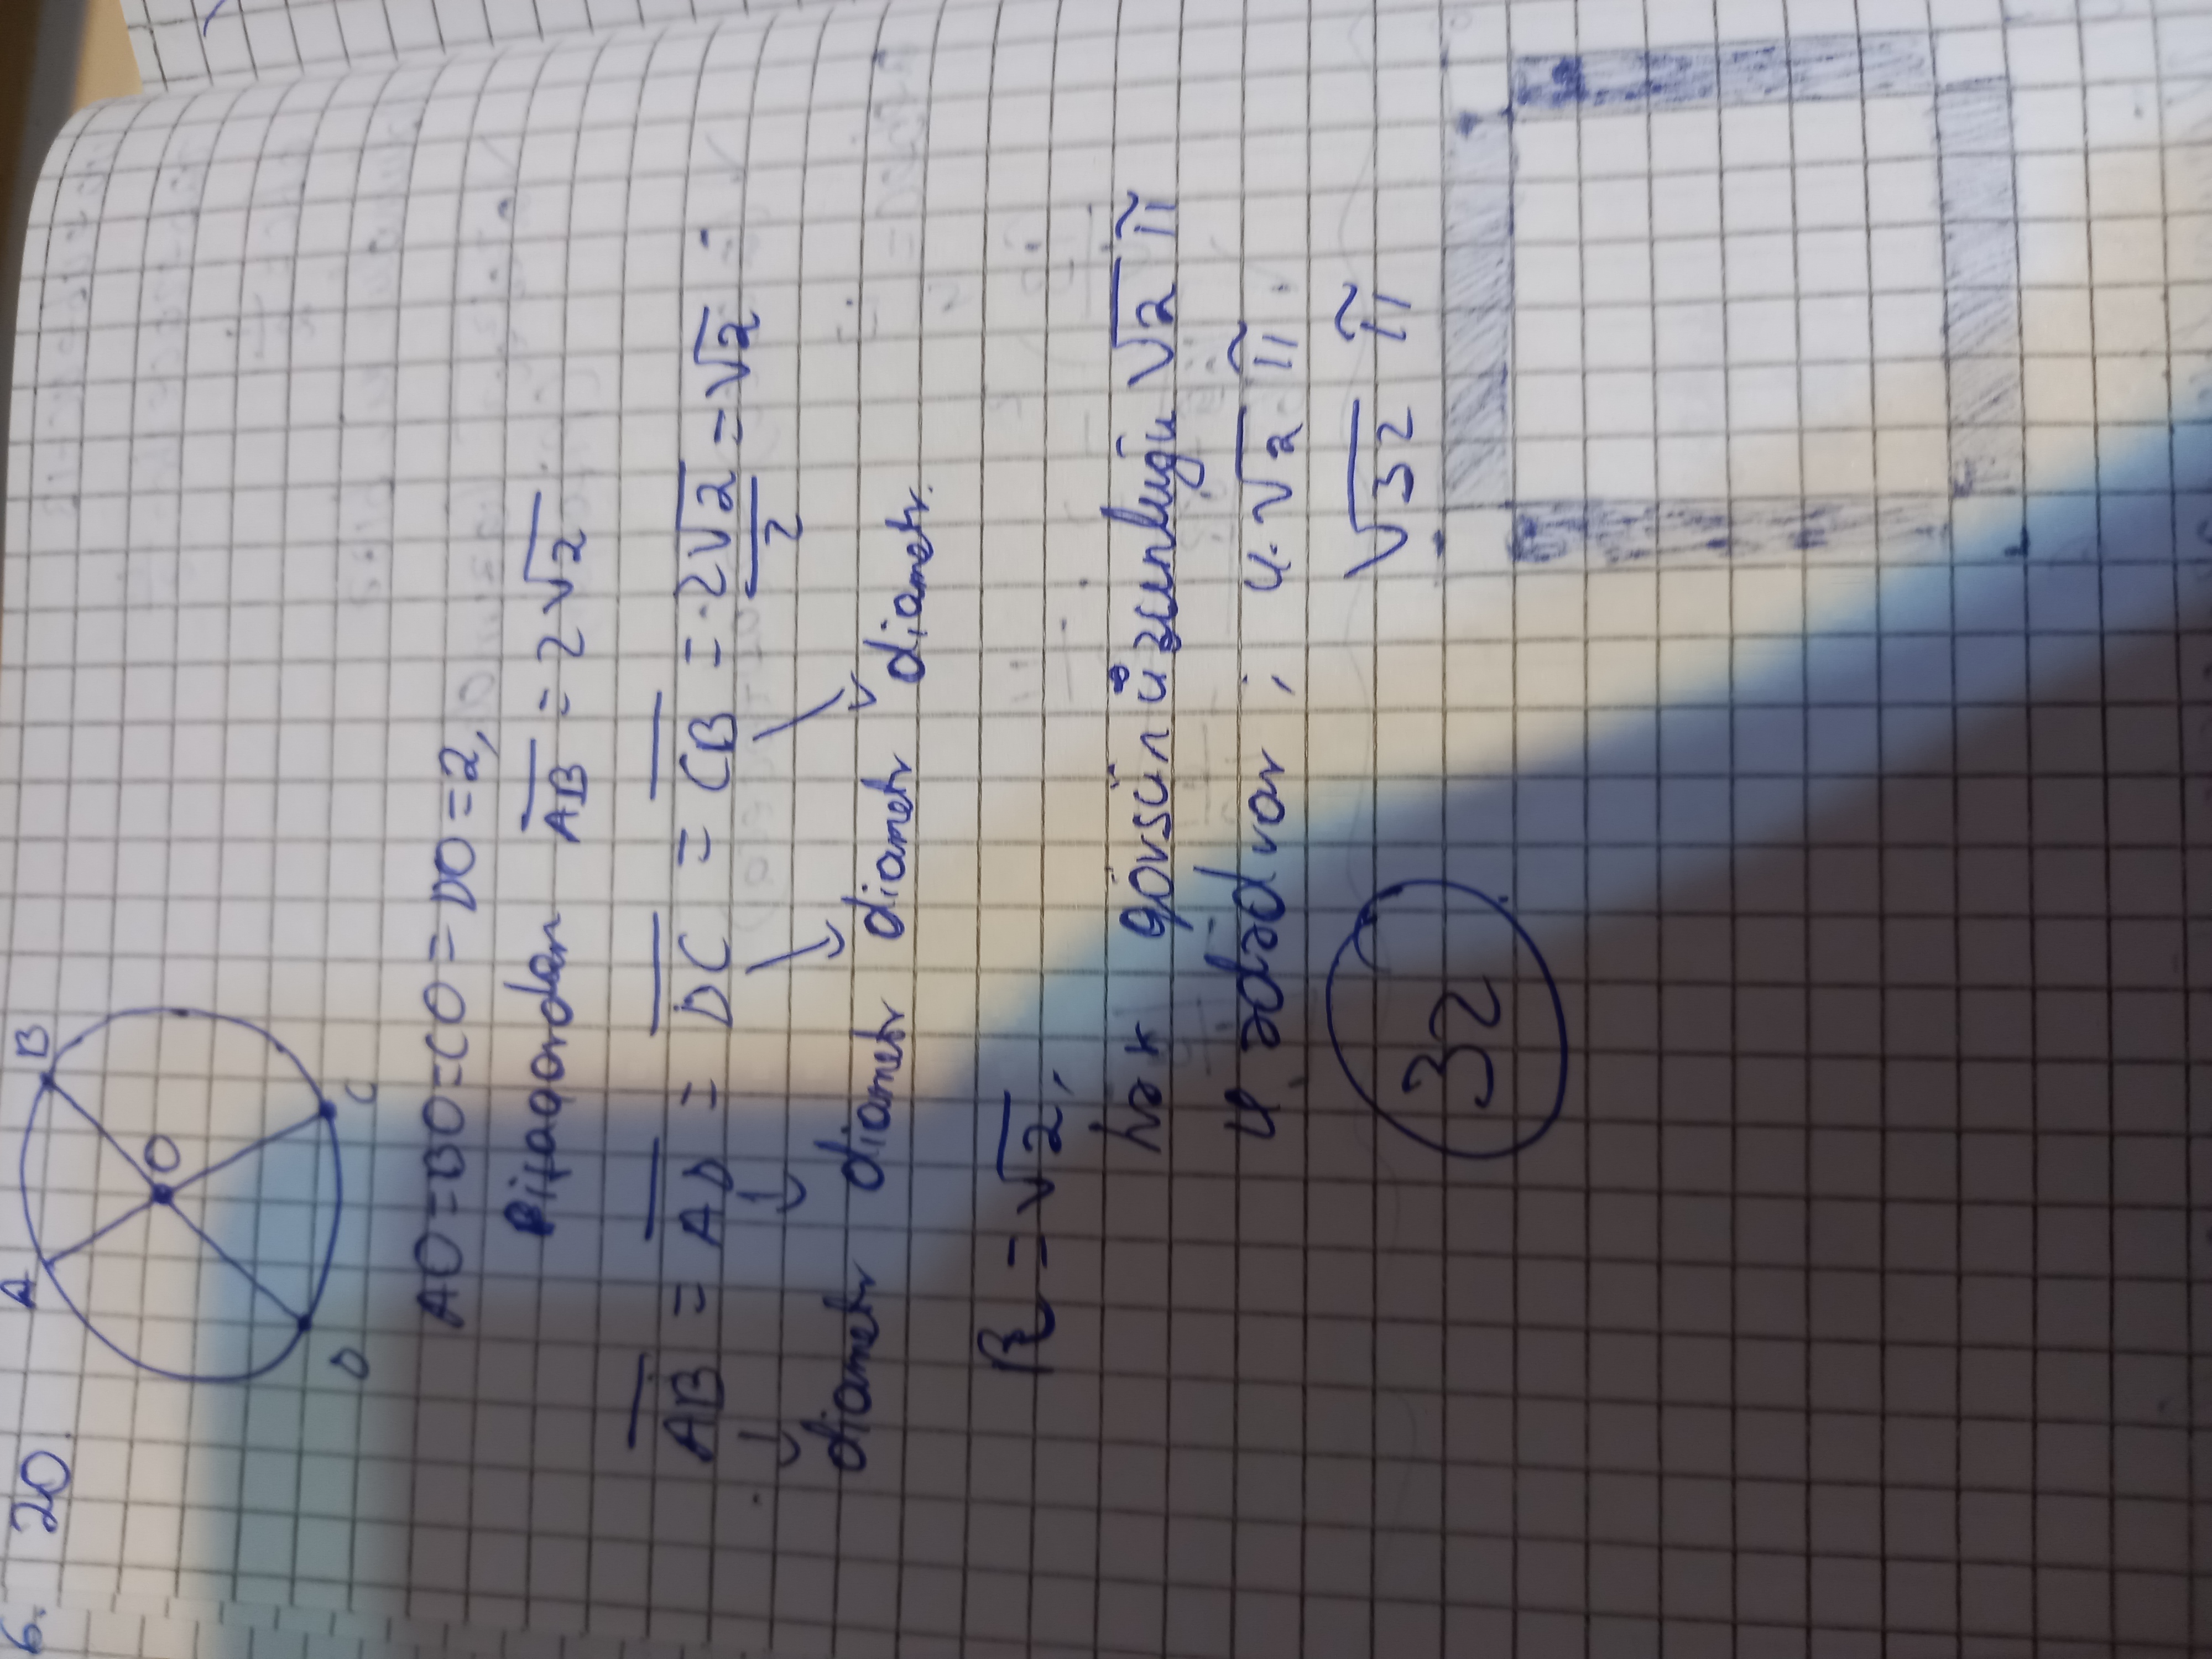 6. 20
A B
O
D C
AO=BO=CO=DO=2,
Pifagordan AB = 2√2
AB = AD = DC = CB = 2√2/2 = √2
diametr diametr diametr diametr.
R = √2,
hər qövsün uzunluğu √2 π
4 ədəd var ; 4·√2 π.
32 √32 π